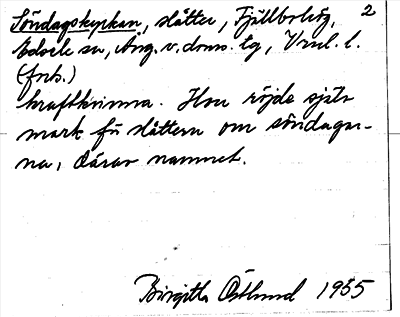 Söndagskyrkan, slåtter, Fjällbohög, 2
Edsele sn, Ång. v. dom. lg, Vrul. l.
(forts.)
kraftkvinna. Hon röjde själv
mark för slåttern om söndagar-
na, därav namnet.
Birgitta Östlund 1955